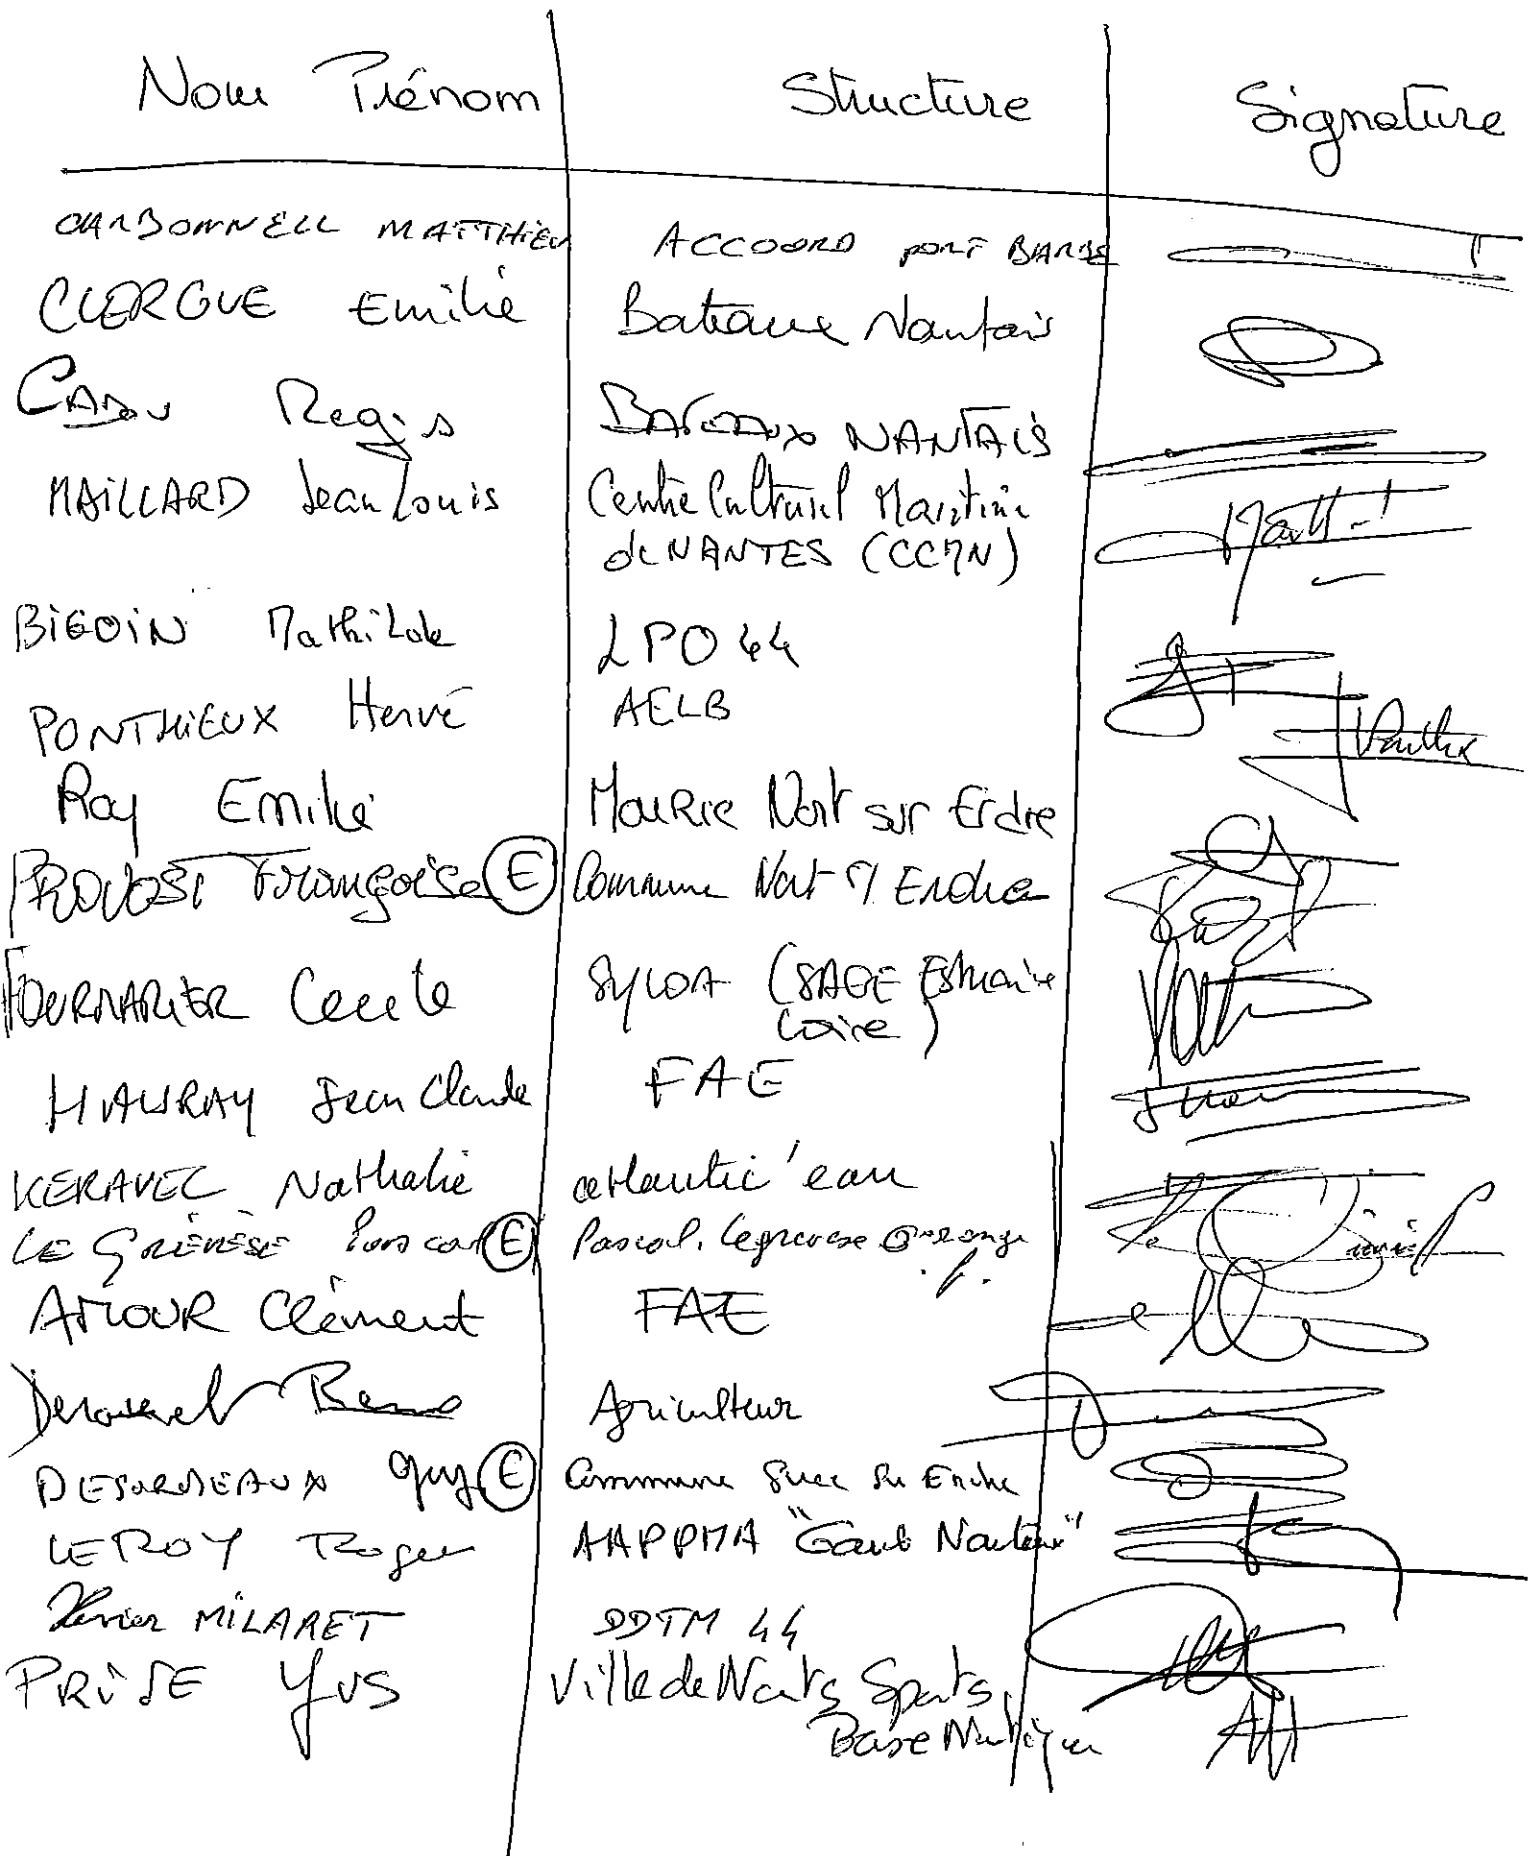 Nom Prénom Structure Signature
CARBONNELL MATTHIEU ACCOORD PORT BARBE
CLERGUE Emilie Bateaux Nantais
CADOU Regis BATEAUX NANTAIS
MAILLARD Jean Louis Centre Culturel Maritime
de NANTES (CCMN)
BIGOIN Mathilde LPO 44
PONTHIEUX Hervé AELB
Roy Emilie Mairie Nort sur Erdre
PROVOST Françoise (E) Commune Nort s/ Erdre
FOURNARIER Cecile SYLOA (SAGE Estuaire
Loire)
MAURAY Jean Claude FAE
KERAVEC Nathalie atlantic'eau
LE GRÉVÈSE Pascal (E) Pascal.legrevese@orange
.fr.
AMOUR Clément FAE
Agriculteur
DESORMEAUX guy (E) Commune Sucé sur Erdre
LEROY Roger AAPPMA "Gaule Nantaise"
Xavier MILARET DDTM 44
PRISE YVES Ville de Nantes Sports
Base Nautique